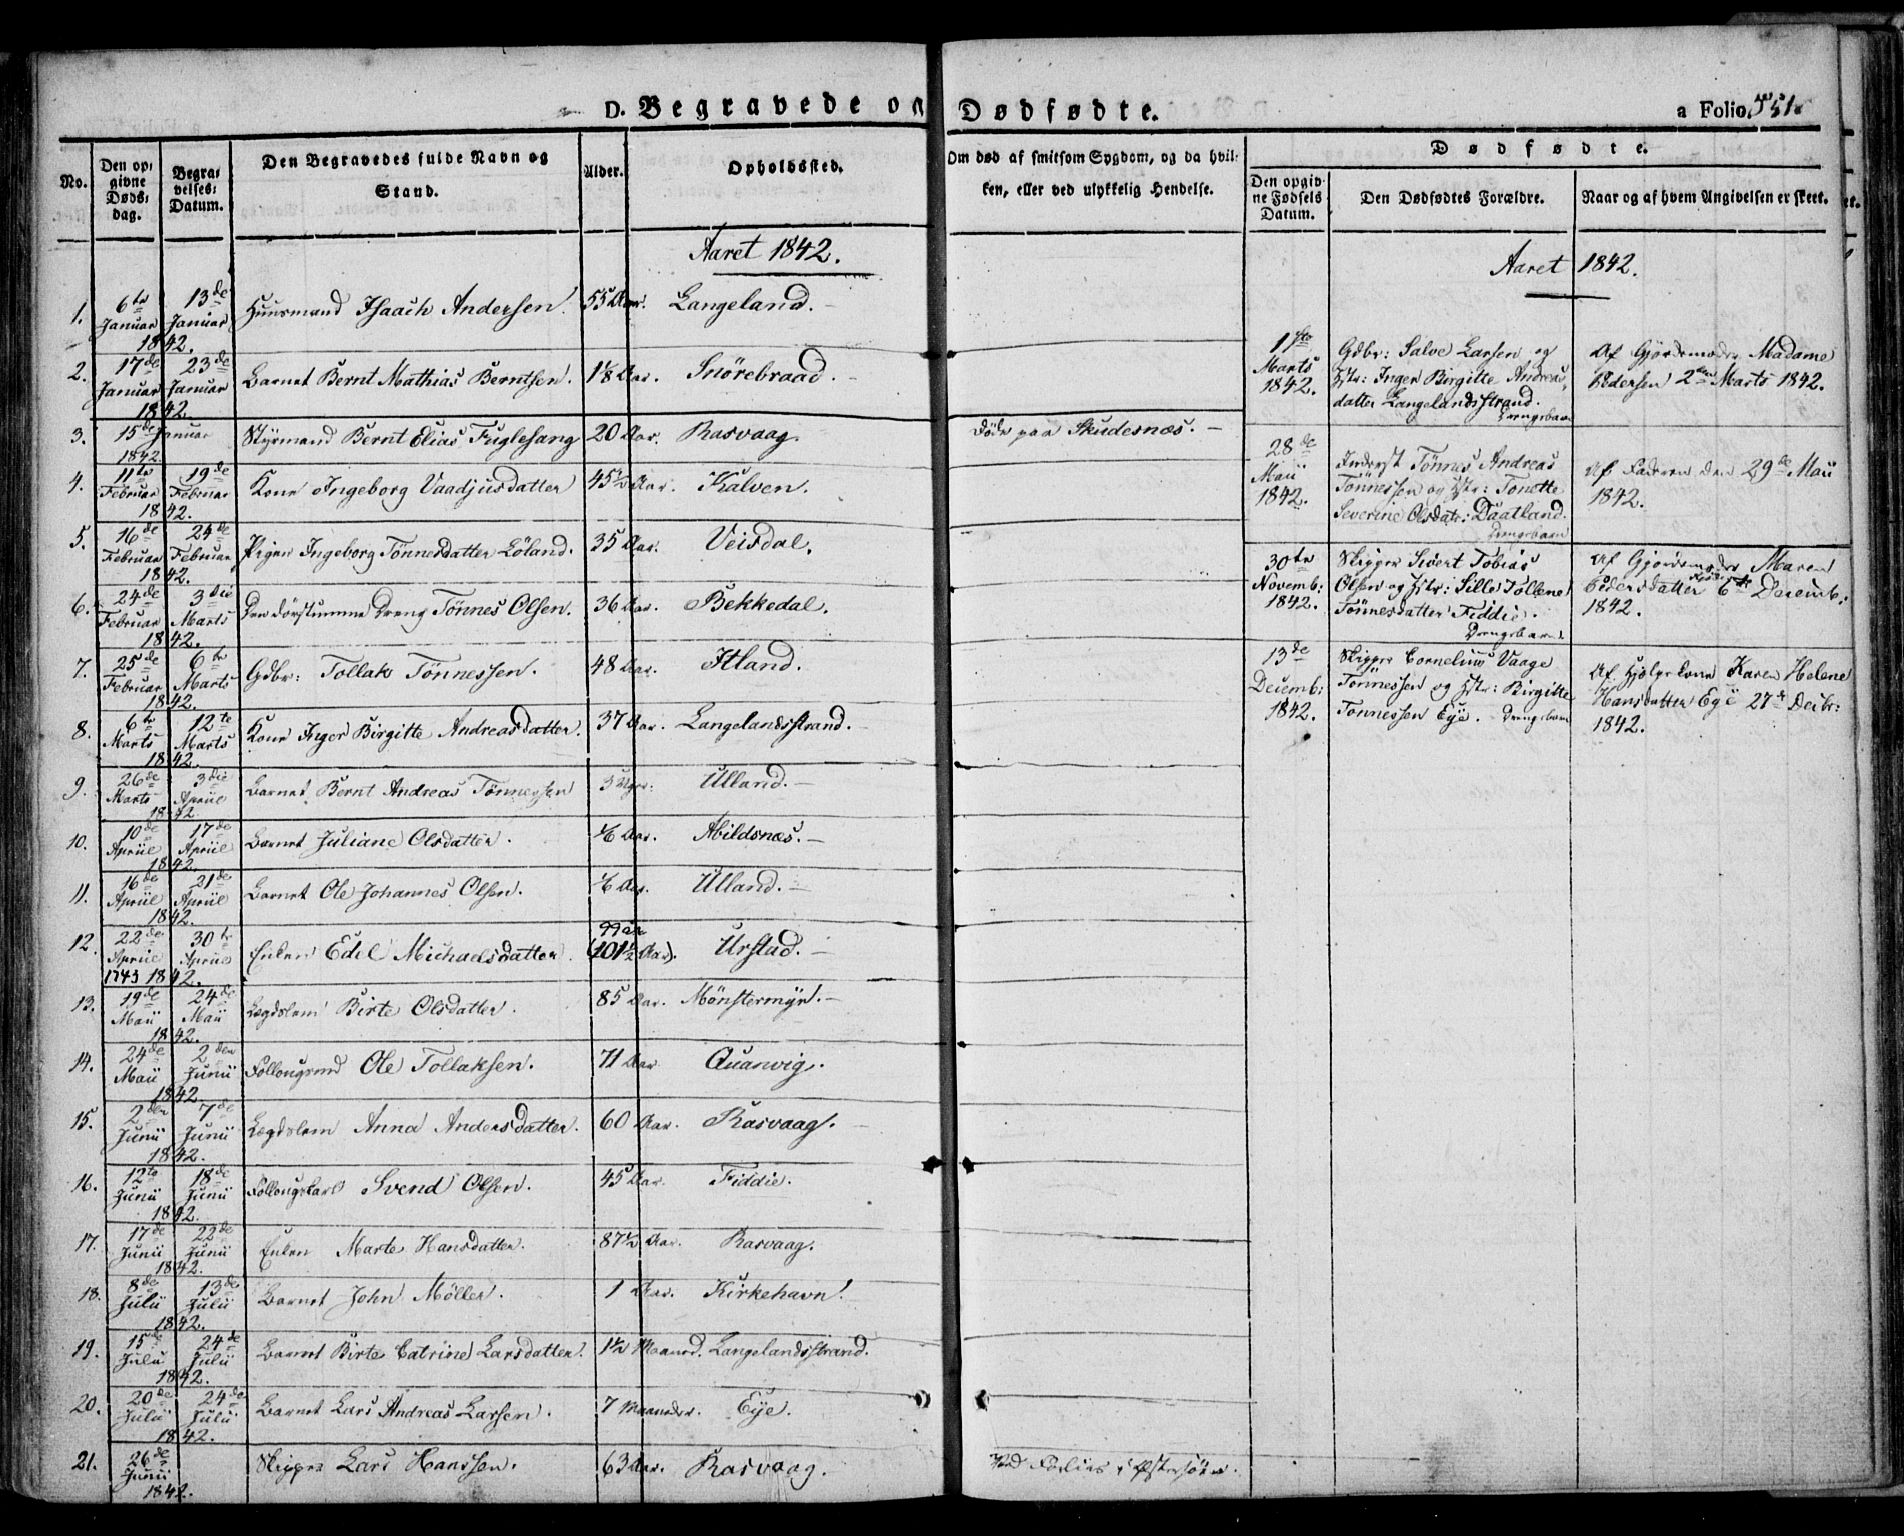 D. Begravede og Dødfødte.
a Folio 551.
No.
Den opgivne Dødsdag.
Begravelses Datum.
Den Begravedes fulde Navn og Stand.
Alder.
Opholdssted.
Om død af smitsom Sygdom, og da hvilken, eller ved ulykkelig Hendelse.
Dødfødte.
Den opgivne Fødsels Datum.
Den Dødfødtes Forældre.
Naar og af hvem Angivelsen er skeet.
Aaret 1842.
1. 6te Januar 13de Januar 1842. Huusmand Isaach Andersen. 55 Aar. Langeland.
2. 17de Januar 23de Januar 1842. Barnet Bernt Mathias Berntsen. 1/8 Aar. Snørebraad.
3. 15de Januar 1842. Styrmand Bernt Elias Fuglesang 20 Aar. Rasvaag. Døde paa Skudesnæs.
4. 11te Februar 19de Februar 1842. Kone Ingeborg Vaadjusdatter 45 1/2 Aar. Kalven.
5. 16de Februar 24de Februar 1842. Pigen Ingeborg Tønnesdatter Løland. 35 Aar. Veisdal.
6. 24de Februar 3die Marts 1842. Den døvstumme Dreng Tønnes Olsen. 36 Aar. Bekkedal.
7. 25de Februar 6te Marts 1842. Gdbr: Tollak Tønnessen. 48 Aar. Itland.
8. 6te Marts 12te Marts 1842. Kone Inger Birgitte Andreasdatter. 37 Aar. Langelandsstrand.
9. 26de Marts 3die Apriil 1842 Barnet Bernt Andreas Tønnessen 3 Uger. Ulland.
10. 10de Apriil 17de Apriil 1842. Barnet Juliane Olsdatter. 1/6 Aar. Abildsnæs.
11. 16de Apriil 21de Apriil 1842. Barnet Ole Johannes Olsen. 1/6 Aar. Ulland.
12. 22de Apriil 30te Apriil 1743 1842. Enken Edel Michaelsdatter. 99 (101 1/2 Aar). Urstad.
13. 19de Maii 24de Maii 1842. Lægdslem Birte Olsdatter. 85 Aar. Mønstermyr.
14. 24de Maii 2den Junii 1842. Ole Tollaksen. 71 Aar Quanvig.
15. 2den Junii 7de Junii 1842. Lægdslem Anna Andersdatter. 60 Aar. Rasvaag.
16. 12te Junii 18de Junii 1842. Svend Olsen. 45 Aar. Fiddie.
17. 17de Junii 22de Junii 1842. Enken Marte Hansdatter. 87 1/2 Aar. Rasvaag.
18. 8de Julii 13de Julii 1842. Barnet John Møller. 1 Aar. Kirkehavn.
19. 15de Julii 24de Julii 1842. Barnet Birte Catrine Larsdatter. 1 1/2 Maaned. Langelandsstrand.
20. 20de Julii 24de Julii 1842. Barnet Lars Andreas Larsen. 7 Maaneder. Eye.
21. 26de Junii 1842. Skipper Lars Hanssen. 63 Aar. Rasvaag. Ved Forliis i Østersøen.
Aaret 1842.
1ste Marts 1842. Gdbr: Salve Larsen og Hstr: Inger Birgitte Andreasdatter Langelandsstrand. Drengebarn Af Gjordemoder Madame Pedersen 2den Marts 1842.
28de Maii 1842. Inderst Tønnes Andreas Tønnessen og Hstr: Tonette Severine Olsdatr: Daatland. Drengebarn Af Faderen den 29de Maii 1842.
30te Novemb: 1842. Skipper Sivert Tobias Olsen og Hstr: Sille Tollene Tønnesdatter Fiddie. Drengebarn. Af Gjordemoder Maren Pedersdatter 6te Decemb: 1842.
13de Decemb: 1842. Skipper Cornelius Vaage Tønnessen og Hstr: Birgitte Tønnessen Eye. Drengebarn Af Hjelpekone Karen Helene Hansdatter Eye 27de Decbr: 1842.